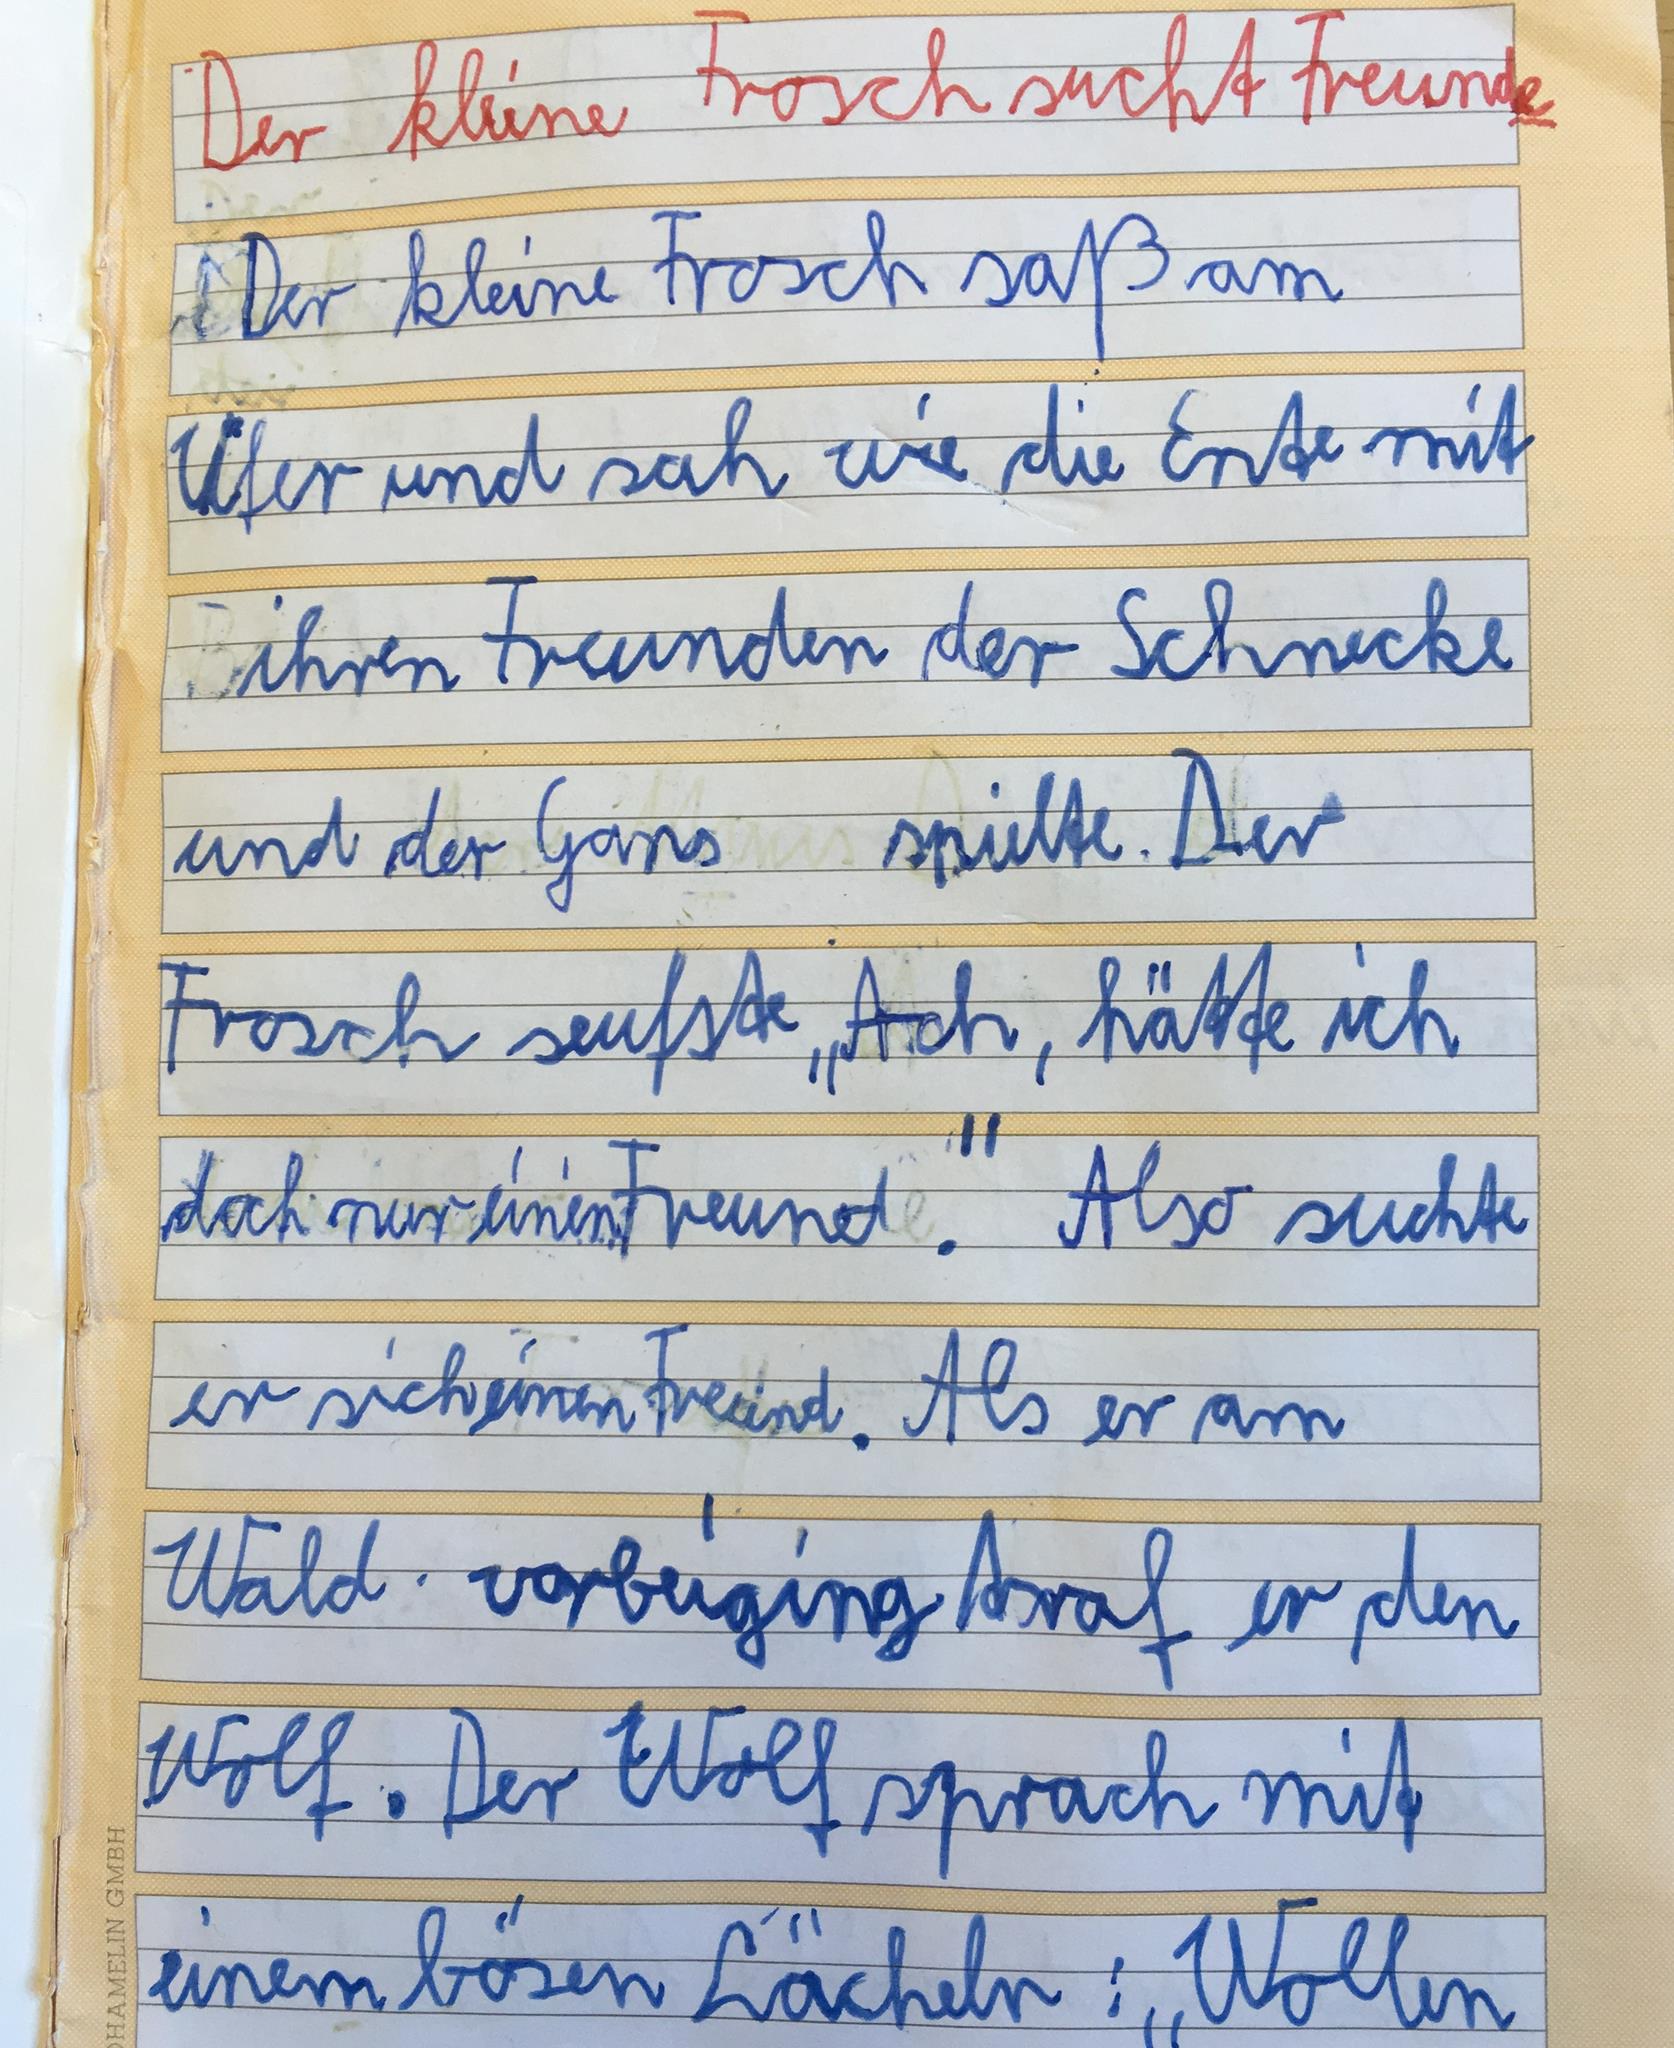 Der kleine Frosch sucht Freunde
Der kleine Frosch saß am
Ufer und sah wie die Ente mit
ihren Freunden der Schnecke
und der Gans spielte. Der
Frosch seufste „Ach, hätte ich
doch nur einen Freund." Also suchte
er sich einen Freund. Als er am
Wald vorbeiging traf er den
Wolf. Der Wolf sprach mit
einem bösen Lächeln: „Wollen
HAMELIN GMBH